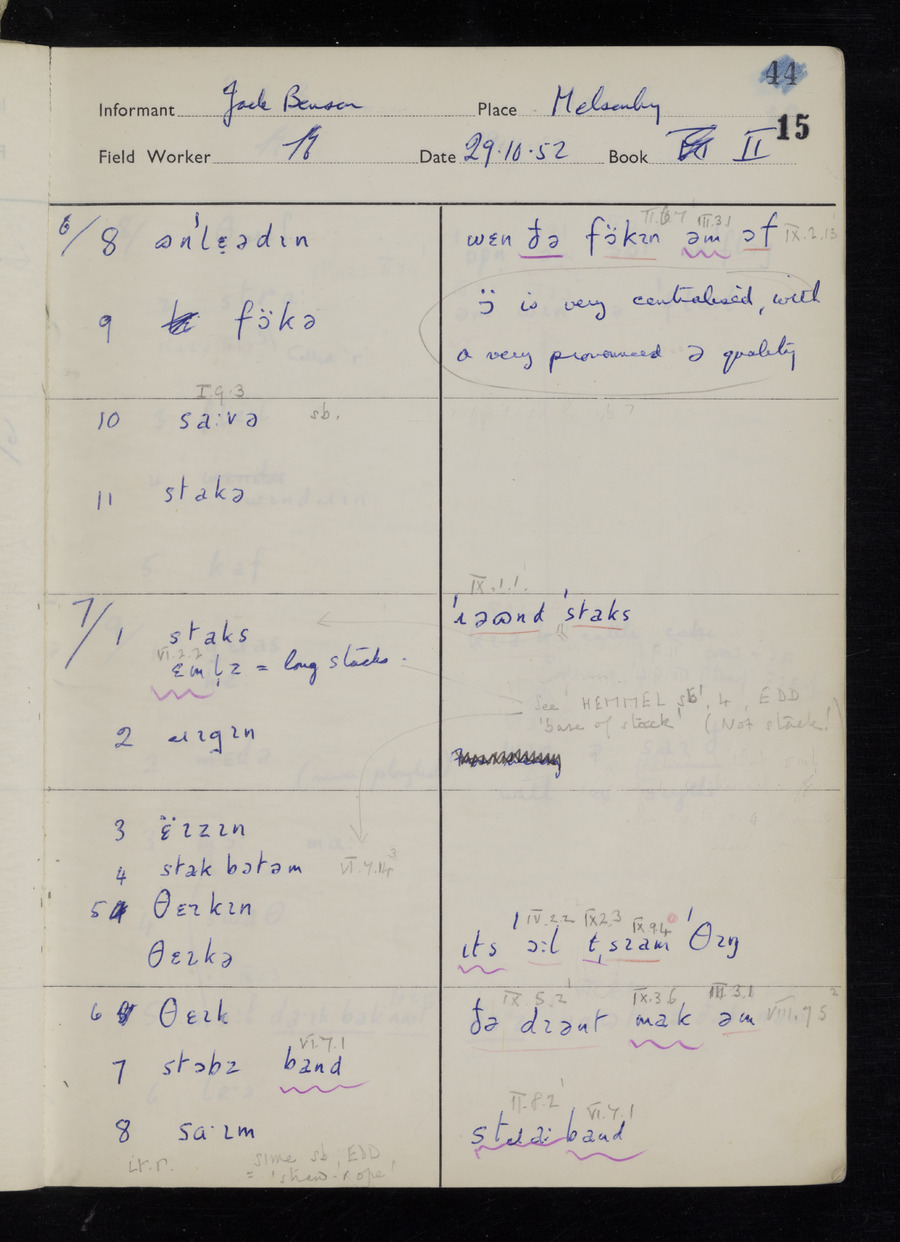 44
Informant Jack Benson Place Melsonby 15
Field Worker Date 29.10.52 Book II
6/8 ɷn'lɛ̣ədɪn wɛn ðə fɔ̈kɪn əm əf IX.2.13
III.3.1
9 fɔ̈kə ɔ̈ is very centralised, with
a very pronounced ə quality
I.9.3
10 sa:və sb.
11 stakə
IX.1.1
7/1 staks 'ɹəɷnd 'staks
VI.2.2
ɛml̩z = long stacks.
See HEMMEL sb', 4, EDD
'base of stack' (Not stack!)
2
3 ɛ̈ɪzɪn
4 stak bɔtəm VI.7.14³
5 θɛɪkɪn
IV.2.2 IX.2.3 IX.9.4
ɪts ɔ:l t̩ sɪam 'θɪŋ
θɛɪkə
IX.5.2 IX.3.6 III.3.1
6 θɛɪk ðə dɪənt mak əm VIII.7.5²
VI.7.1
7 stɔbz band
II.8.2 VI.7.1
8 sa·ɪm stɹa: band
sime sb, EDD
= 'straw-rope'